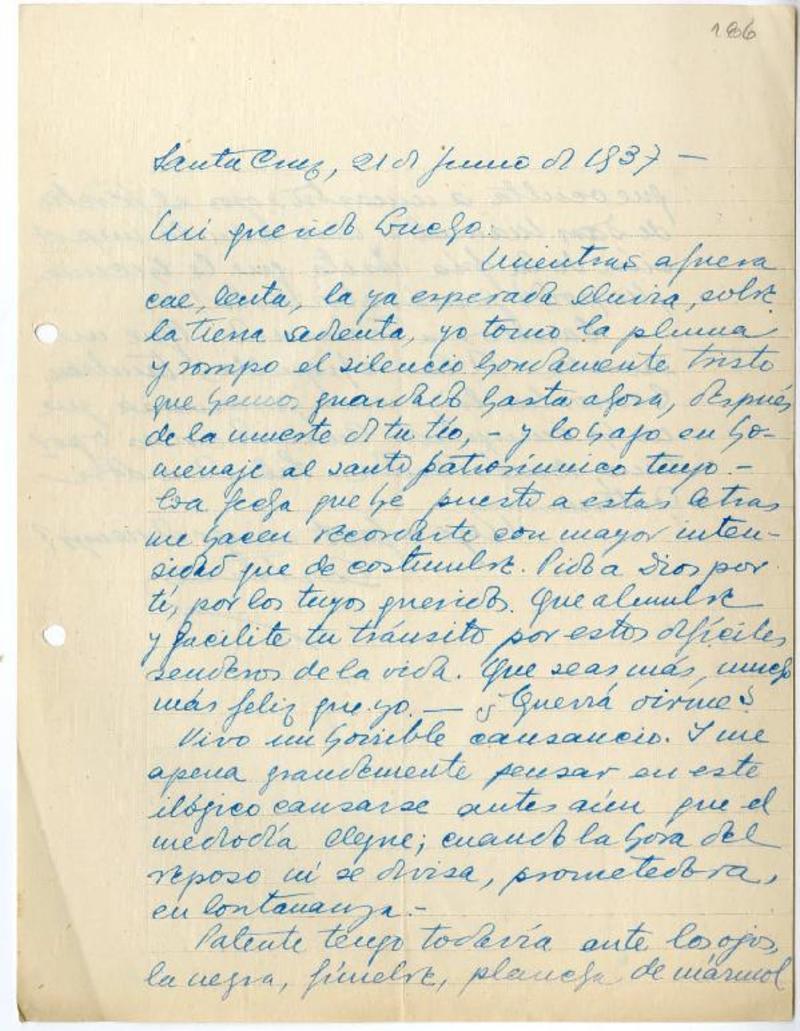 186
Santa Cruz, 21 de junio de 1937 —
Mi querido Lucho.
Mientras afuera
cae, lenta, la ya esperada lluvia, sobre
la tierra sedienta, yo tomo la pluma
y rompo el silencio hondamente triste
que hemos guardado hasta ahora, después
de la muerte de tu tío, - y lo hago en ho-
menaje al santo patronímico tuyo. -
La fecha que he puesto a estas letras
me hacen recordarte con mayor inten-
sidad que de costumbre. Pido a Dios por
tí, por los tuyos queridos. Que alumbre
y facilite tu tránsito por estos difíciles
senderos de la vida. Que seas más, mucho
más feliz que yo. — ¿Querrá oirme?
Vivo un horrible cansancio. I me
apena grandemente pensar en este
ilógico cansarse antes aún que el
mediodía llegue; cuando la hora del
reposo ni se divisa, prometedora,
en lontananza. -
Patente tengo todavía ante los ojos,
la negra, fúnebre, plancha de mármol